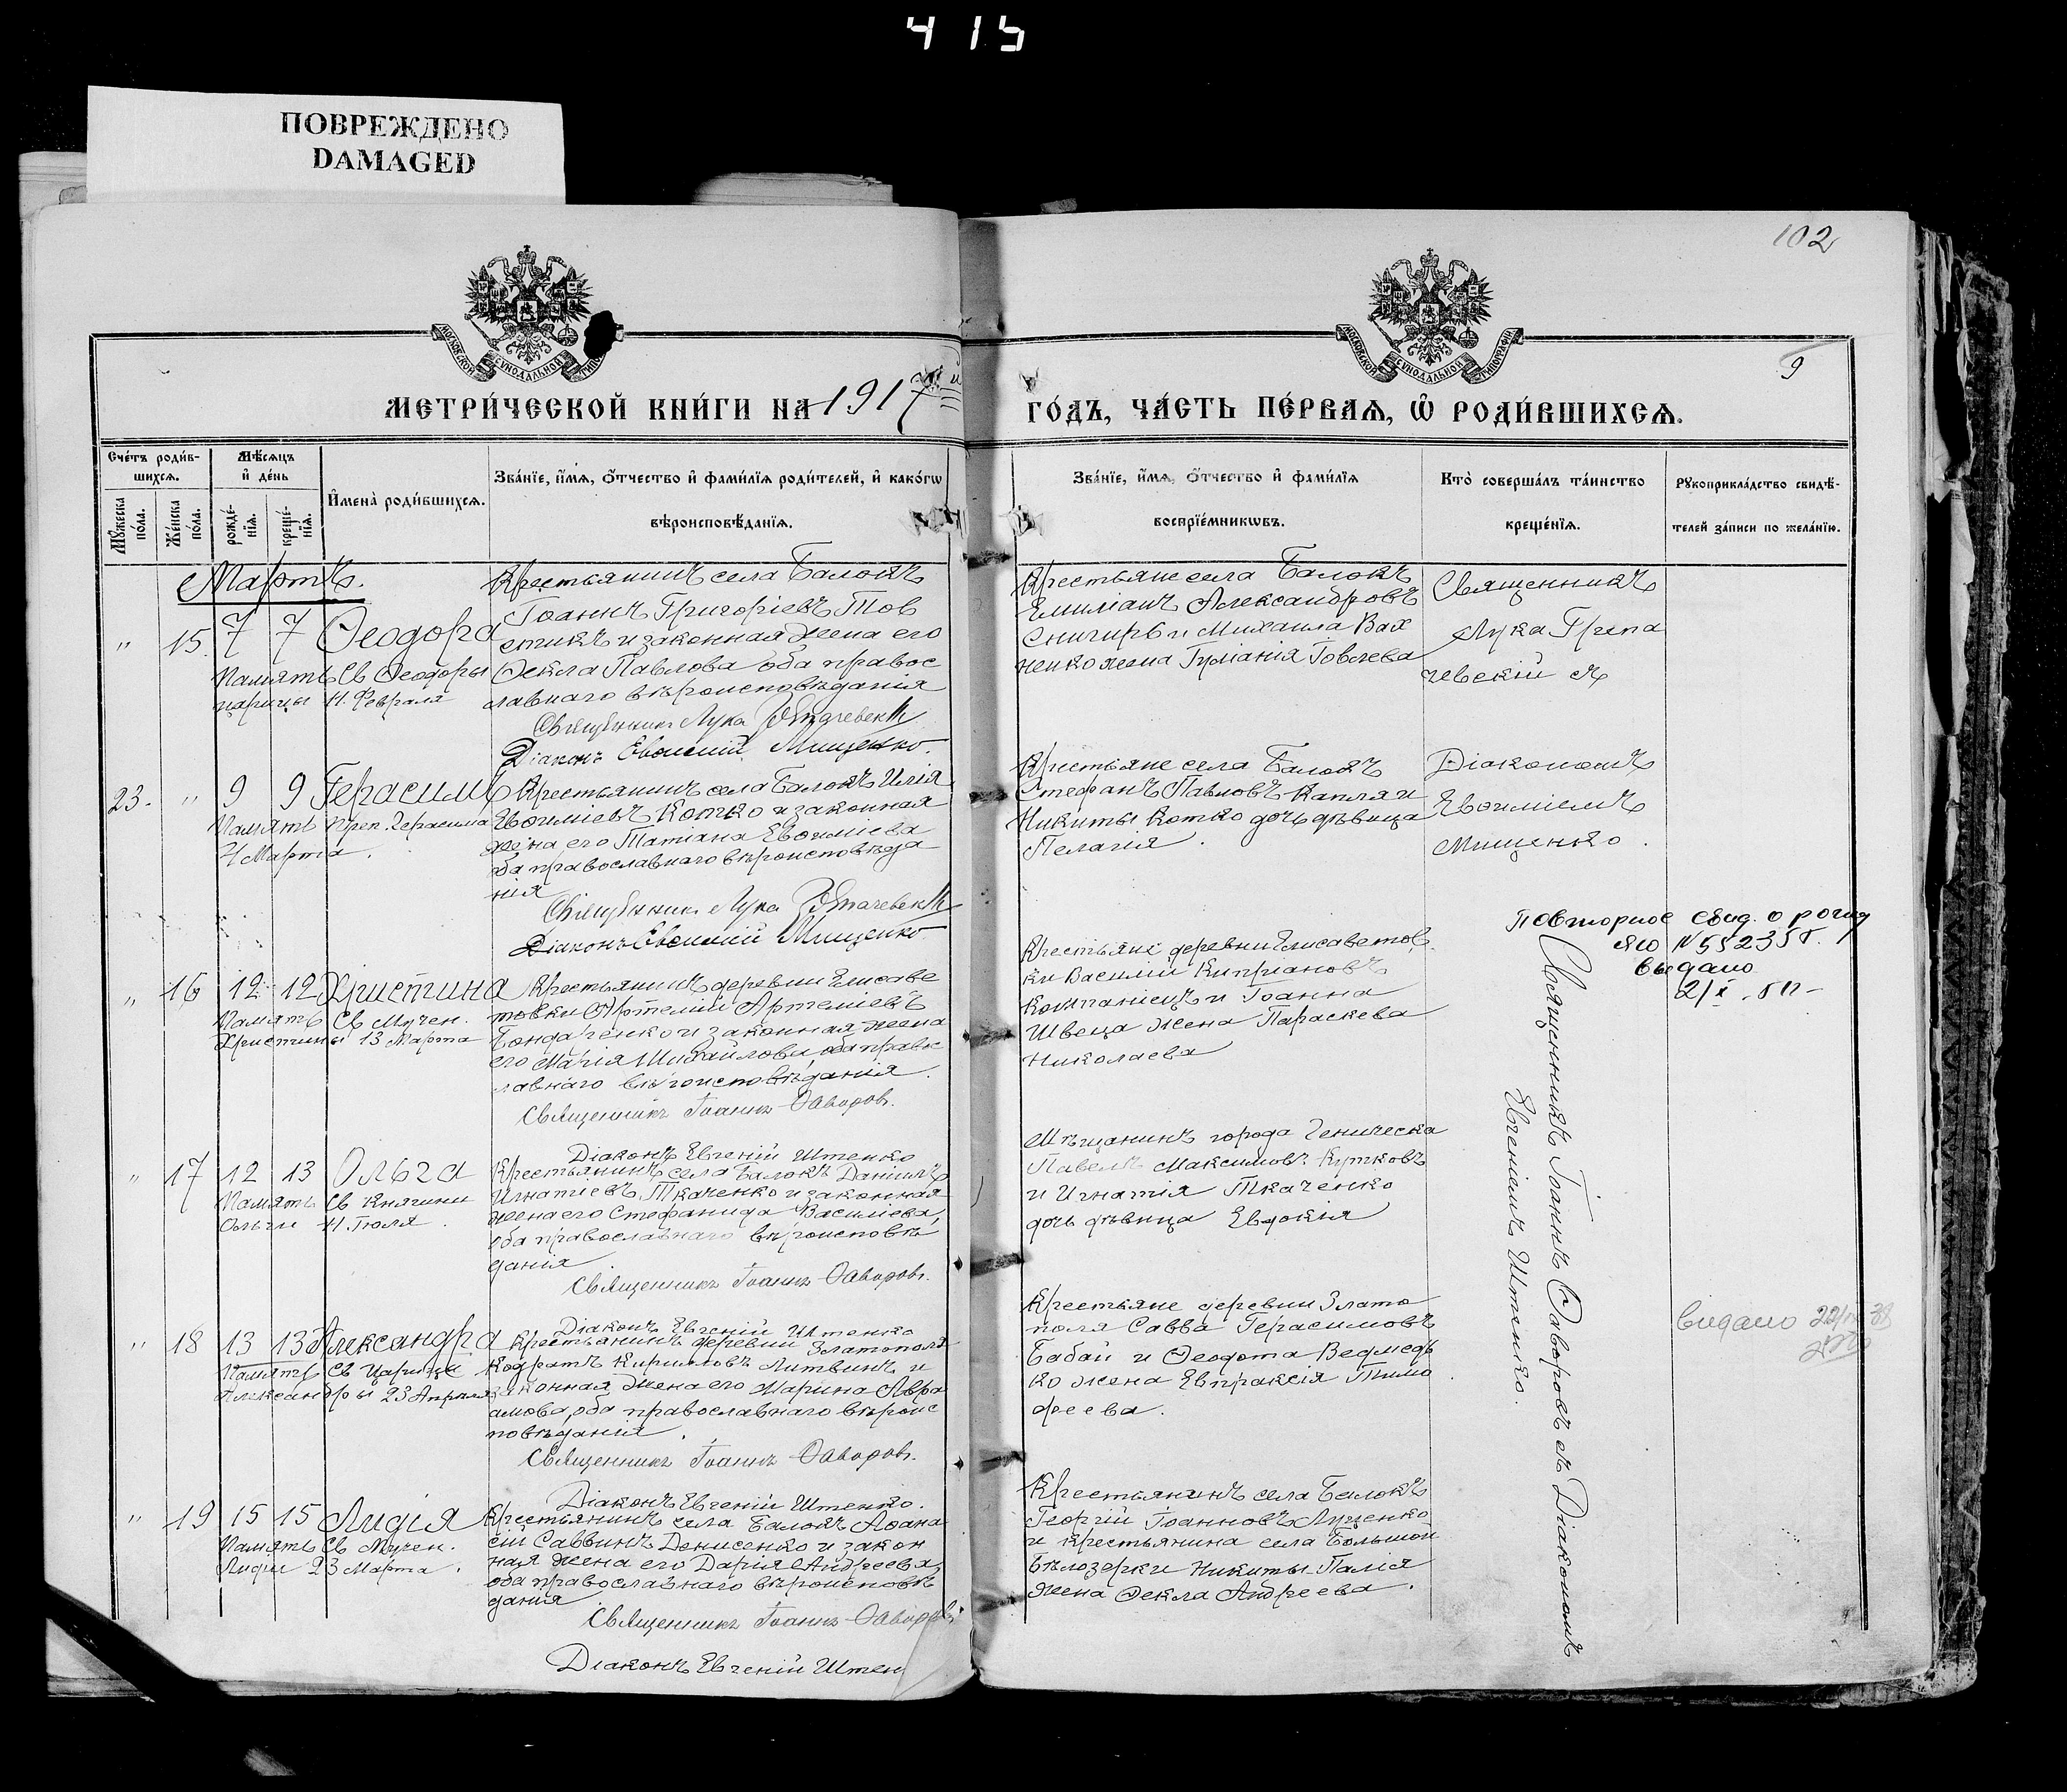 415
ПОВРЕЖДЕНО
DAMAGED
102
9
МОСКОВСКОЙ СѴНОДАЛЬНОЙ
МОСКОВСКОЙ СѴНОДАЛЬНОЙ ТИПОГРАФІИ
МЕТРИ́ЧЕСКОЙ КНИ́ГИ НА 1917
ГО́ДЪ, ЧА́СТЬ ПЕ́РВАѦ, Ѡ҆ РОДИ́ВШИХСѦ.
Сче́тъ роди́в-
шихсѧ.
Мꙋ́жеска по́ла.
Же́нска по́ла.
Мѣ́сѧцъ
и҆ де́нь
рожде́-
нїѧ.
креще́-
нїѧ.
И҆мена̀ роди́вшихсѧ.
Зва́нїе, и҆́мѧ, ѻ҆́тчество и҆ фами́лїѧ роди́телей, и҆ како́гѡ
вѣроисповѣ́данїѧ.
Зва́нїе, и҆́мѧ, ѻ҆́тчество и҆ фами́лїѧ
воспрїе́мникѡвъ.
Кто̀ соверша́лъ та́инство
креще́нїѧ.
Рꙋкоприкла́дство свидѣ́-
телей за́писи по жела́нїю.
Мартъ.
" 15. 7 7 Ѳеодора
Память Св Ѳеодоры
царицы 11. Февраля
Крестьянинъ села Балокъ
Іоаннъ Григоріевъ Тов
стикъ и законная жена его
Ѳекла Павлова оба правос
лавнаго вѣроисповѣданія
Священникъ Лука
Діаконъ Евѳимій Мищенко.
Крестьяне села Балокъ
Емиліанъ Александровъ
Снигирь и Михаила Вах
ненко жена Гуліанія Іовлева
Священникъ
Лука
23. " 9 9 Герасимъ
Память Преп. Герасима
4 Марта.
Крестьянинъ села Балокъ Илія
Евѳиміевъ Котко и законная
жена его Татіана Евѳиміева
оба православнаго вѣроисповѣда
нія
Священникъ Лука
Діаконъ Евѳимій Мищенко
Крестьяне села Балокъ
Стефанъ Павловъ Капля и
Никиты Котко дочь дѣвица
Пелагія.
Діакономъ
Евѳиміемъ
Мищенко.
" 16 12 12 Христина
Память Св Мучен.
Христины 13 Марта
Крестьянинъ деревни Елисаве
товки Артемій Артеміевъ
Бондаренко и законная жена
его Марія Михайлова, оба правос
лавнаго вѣроисповѣданія.
Священникъ Іоаннъ Ѳаворовъ.
Діаконъ Евгеній Штенко
Крестьяне деревни Елисаветов
ки Василій Кипріановъ
Компаніецъ и Іоанна
Швеца жена Параскева
Николаева
Повторное свид. о рожд
выдано
" 17 12 13 Ольга
Память Св Княгини
Ольги 11. Іюля.
Крестьянинъ села Балокъ Даніилъ
Игнатіевъ Ткаченко и законная
жена его Стефанида Василіева,
оба православнаго вѣроисповѣ
данія
Священникъ Іоаннъ Ѳаворовъ.
Діаконъ Евгеній Штенко
Мѣщанинъ города Геническа
Павелъ Максимовъ Кутковъ
и Игнатія Ткаченко
дочь дѣвица Евдокія
" 18 13 13 Александра
Память Св Царицы
Александры 23 Апреля
Крестьянинъ деревни Златополя
Кодратъ Кириловъ Литвинъ и
законная жена его Марина Авра
амова, оба православнаго вѣроис
повѣданія.
Священникъ Іоаннъ Ѳаворовъ.
Діаконъ Евгеній Штенко.
Крестьяне деревни Злато
поля Савва Герасимовъ
Бабай и Ѳеодота Ведмедь
ко жена Евпраксія Тимо
феева.
Видано
" 19 15 15 Лидія
Память Св Мучен.
Лидіи 23 Марта.
Крестьянинъ села Балокъ Аѳана
сій Саввинъ Денисенко и закон
ная жена его Дарія Андреева,
оба православнаго вѣроисповѣ
данія
Священникъ Іоаннъ Ѳаворовъ
Діаконъ Евгеній Штен
Крестьянинъ села Балокъ
Георгій Іоанновъ Луценко
и крестьянина села Большой
Бѣлозерки Никиты Палія
жена Ѳекла Андреева.
Священникъ Іоаннъ Ѳаворовъ съ Діакономъ
Евгеніемъ Штенко.